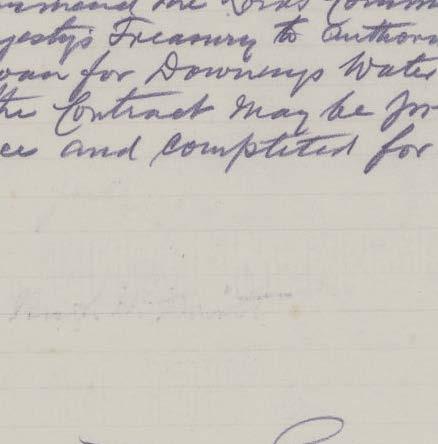 mmend the Lords Comm
jesty's Treasury to Author
oan for Downings Water
the Contract may be pr
ce and completed for